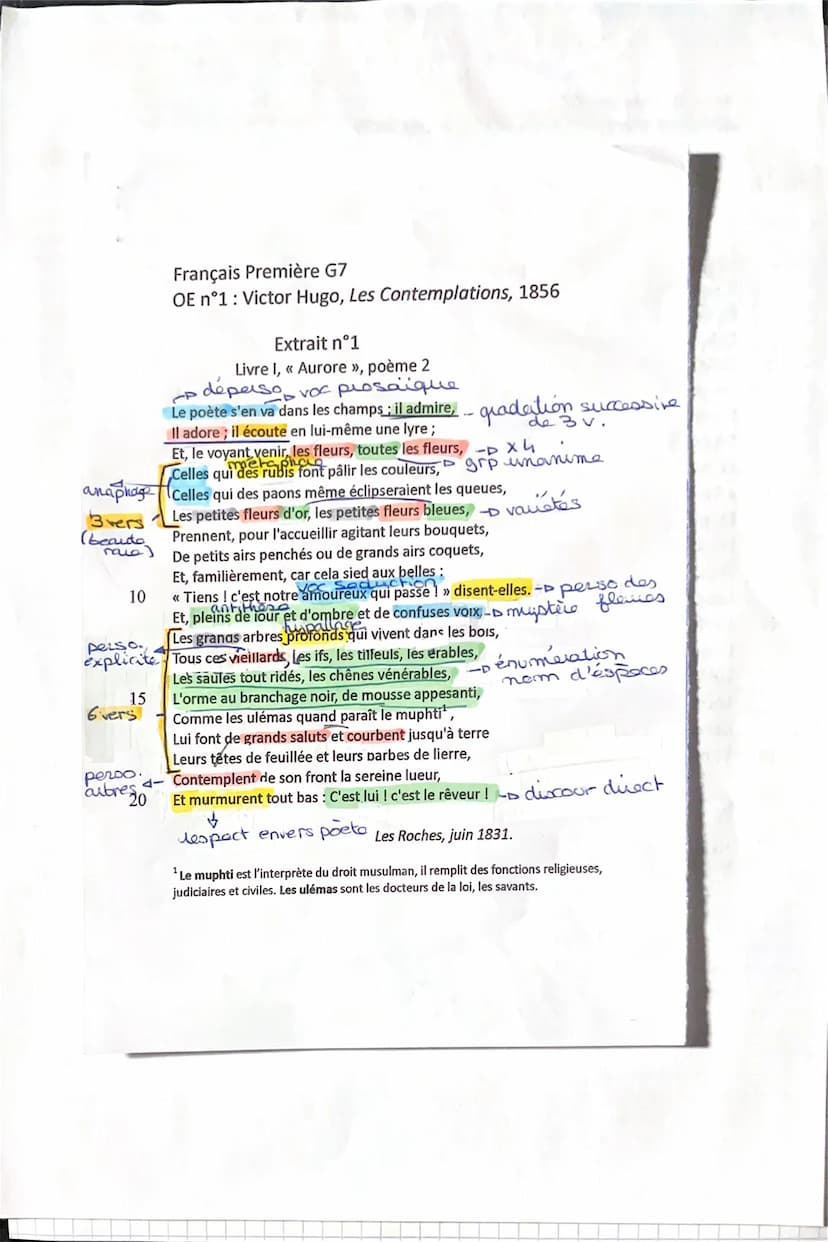 Français Première G7
OE n°1 : Victor Hugo, Les Contemplations, 1856
Extrait n°1
Livre I, « Aurore », poème 2
déperso voc prosaïque
Le poète s'en va dans les champs ; il admire, gradation successive
de 3 v.
Il adore ; il écoute en lui-même une lyre ;
Et, le voyant venir, les fleurs, toutes les fleurs, x4
métaphore grp unanime
Celles qui des rubis font pâlir les couleurs,
anaphore Celles qui des paons même éclipseraient les queues,
3 vers Les petites fleurs d'or, les petites fleurs bleues, variétés
(beauté
Prennent, pour l'accueillir agitant leurs bouquets,
De petits airs penchés ou de grands airs coquets,
Et, familièrement, car cela sied aux belles :
voc seduction
10 « Tiens ! c'est notre amoureux qui passe ! » disent-elles. perso des
fleures
antithèse
Et, pleins de jour et d'ombre et de confuses voix, mystère
hypallage
Les grands arbres profonds qui vivent dans les bois,
perso.
explicite Tous ces vieillards, les ifs, les tilleuls, les érables, énumération
nom d'éspèces
Les saules tout ridés, les chênes vénérables,
15 L'orme au branchage noir, de mousse appesanti,
6 vers Comme les ulémas quand paraît le muphti¹,
Lui font de grands saluts et courbent jusqu'à terre
Leurs têtes de feuillée et leurs barbes de lierre,
perso. Contemplent de son front la sereine lueur,
arbres
20 Et murmurent tout bas : C'est lui ! c'est le rêveur ! discour direct
respect envers poète Les Roches, juin 1831.
¹ Le muphti est l'interprète du droit musulman, il remplit des fonctions religieuses,
judiciaires et civiles. Les ulémas sont les docteurs de la loi, les savants.